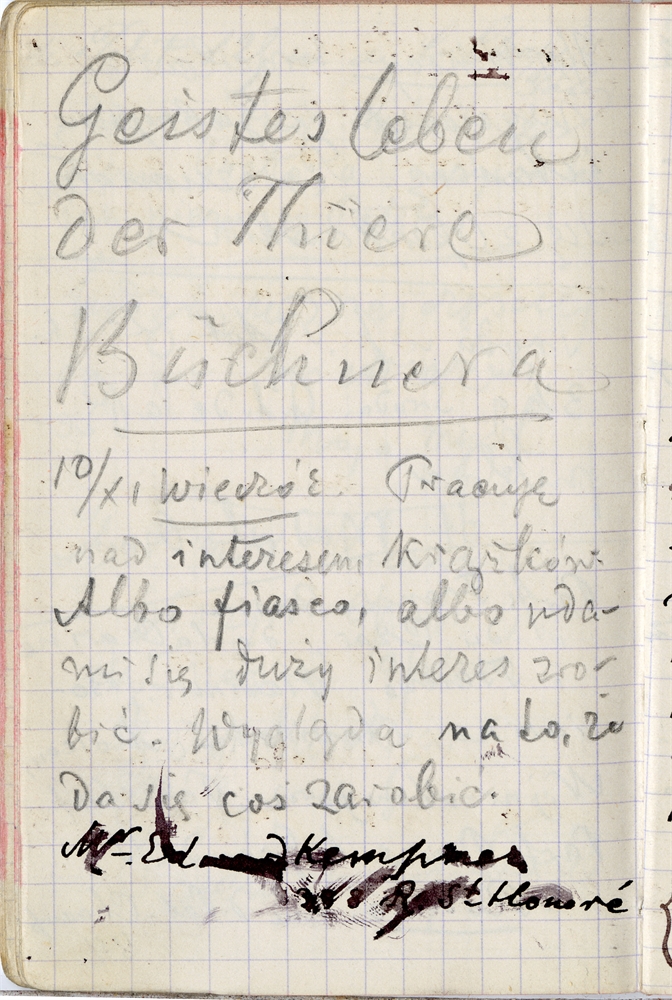 Geistesleben
der Thiere
Büchnera
10/XI wieczór. Pracuję
nad interesem książków.
Albo fiasco, albo uda-
mi się duży interes zro-
bić. Wygląda na to, że
da się coś zarobić.
Mr Edward Kempner
R. St Honoré